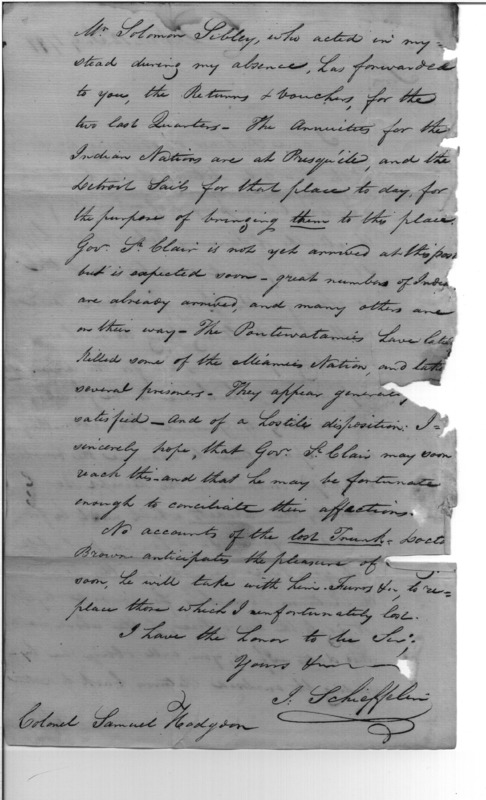 Mr. Solomon Sibley, who acted in my =
stead during my absence, has forwarded
to you, the Returns & Vouchers, for the
two last Quarters - The Annuities for the
Indian Nations are at Presqu'ile, and the
Detroit Sails for that place to day, for
the purpose of bringing them to this place.
Gov. St. Clair is not yet arrived at this
but is expected soon - great numbers of
are already arrived, and many others are
on their way - The Pontewatamies have
killed some of the Miameis Nation, and
several prisoners - They appear
satisfied - and of a hostile disposition. I =
sincerely hope, that Gov. St. Clair may soon
reach this - and that he may be fortunate
enough to conciliate their affections.
No accounts of the lost Trunk -
Brown anticipates the pleasure of
soon, he will take with him &c, to re =
place those which I unfortunately lost.
I have the honor to be Sir,
Yours &c
J. Schieffelin
Colonel Samuel Hodgdon